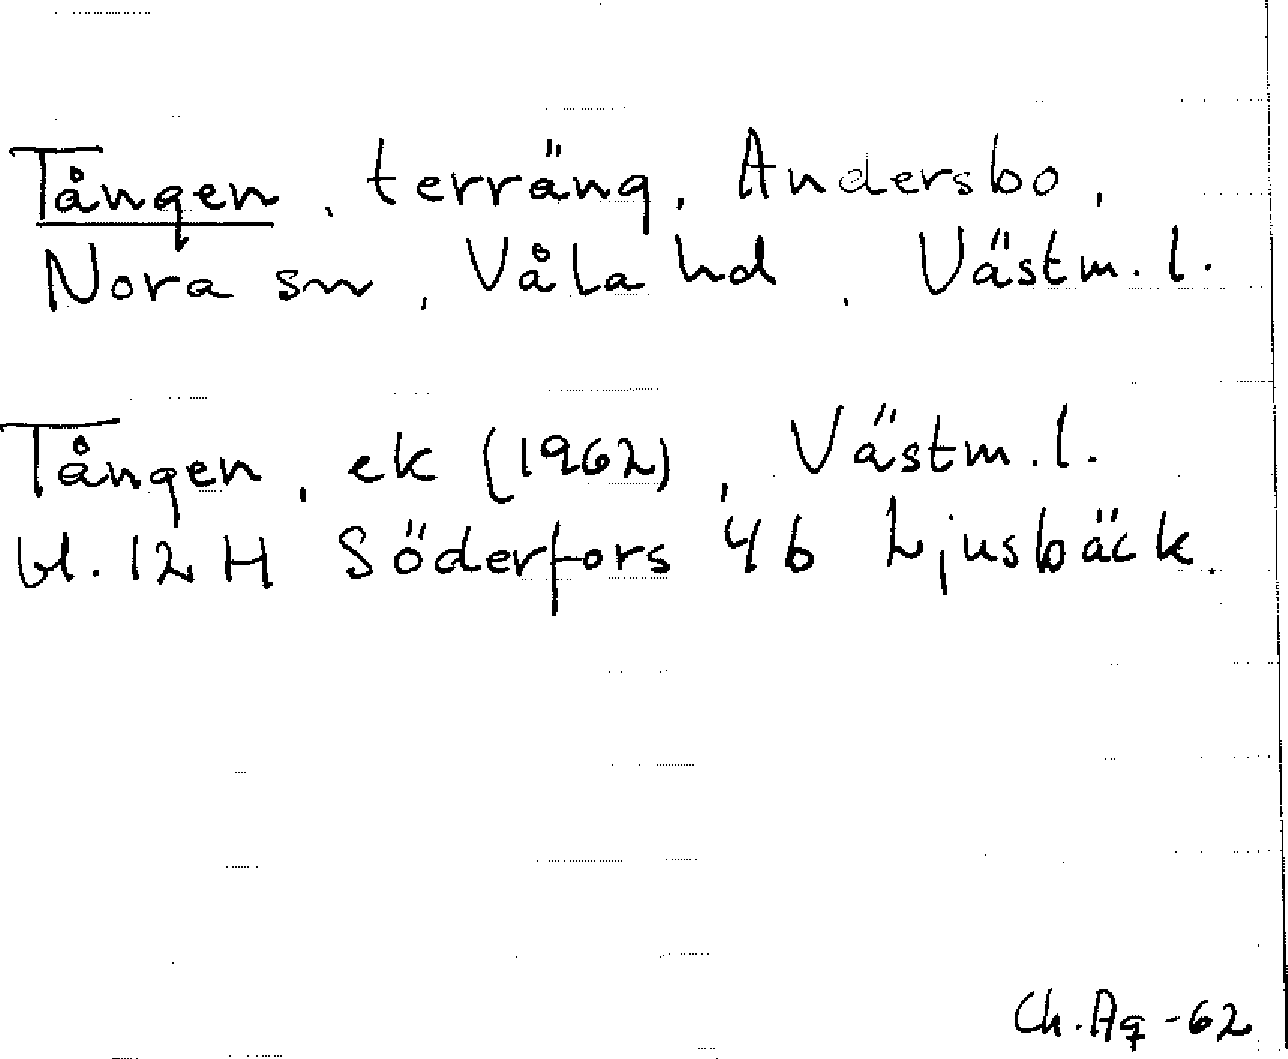 Tången, terräng, Andersbo,
Nora sn, Våla hd, Västm. l.
Tången, ek (1962), Västm. l.
bl. 12 H Söderfors 4b Ljusbäck.
Ch. Ag -62